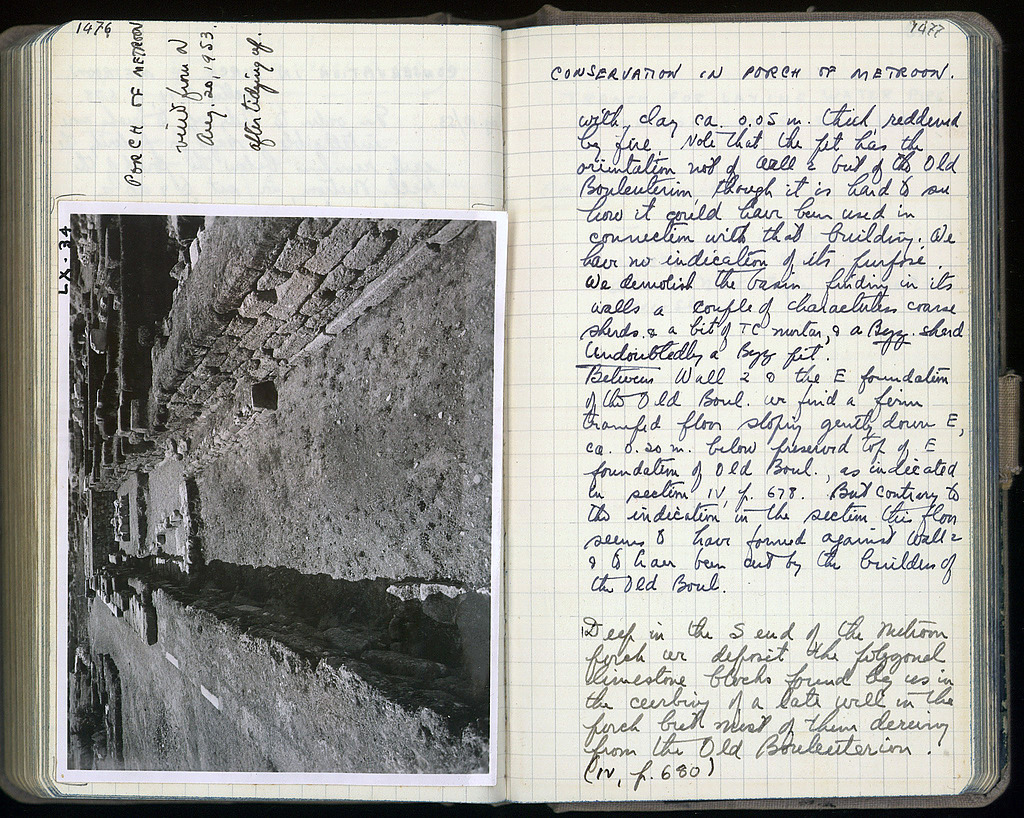 1476
PORCH OF METROON
view from N
Aug. 20, 1953
after tidying up.
LX-34
1477
CONSERVATION IN PORCH OF METROON.
with clay ca. 0.05 m. thick, reddened
by fire. Note that the pit has the
orientation not of wall 2 but of the Old
Bouleuterion, though it is hard to see
how it could have been used in
connection with that building. We
have no indication of its purpose.
We demolish the basin finding in its
walls a couple of characterless coarse
sherds & a bit of TC mortar, & a Byz. sherd
Undoubtedly a Byz pit.
Between Wall 2 & the E foundation
of the Old Boul. we find a firm
tramped floor sloping gently down E,
ca. 0.20 m. below preserved top of E
foundation of Old Boul., as indicated
in section IV, p. 678. But contrary to
the indication in the section this floor
seems to have formed against wall 2
& to have been cut by the builders of
the Old Boul.
Deep in the S end of the Metroon
porch we deposit the polygonal
limestone blocks found by us in
the curbing of a late well in the
porch but most of them deriving
from the Old Bouleuterion.
(IV, p. 680)